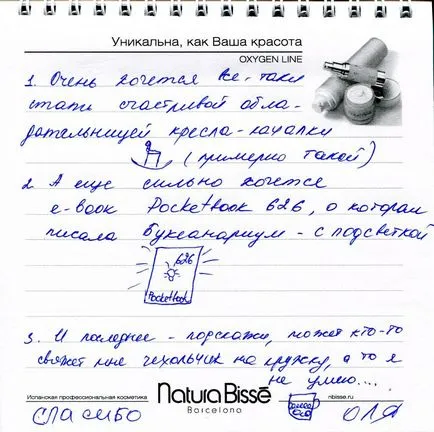 Уникальна, как Ваша красота
OXYGEN LINE
1. Очень хочется все-таки
стать счастливой обла-
дательницей кресла-качалки
(примерно такой)
2. А еще сильно хочется
e-book Pocketbook 626, о котором
писала Буксанариум - с подсветкой
626
Pocketbook
3. И последнее - подскажи, может кто-то
свяжет мне чехольчик на кружку, а то я
не умею....
Испанская профессиональная косметика
Natura Bissé
Barcelona
nbisse.ru
спасибо
Оля